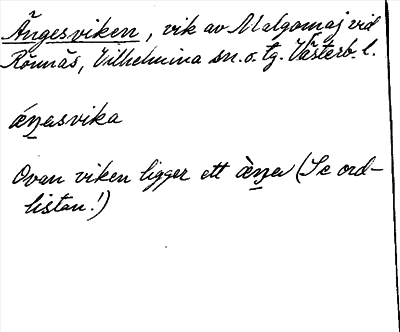 Ängesviken, vik av Malgomaj vid
Rönnäs, Vilhelmina sn. o. tg. Västerb. l.
áŋasvika
Ovan viken ligger ett àŋa (Se ord-
listan!)